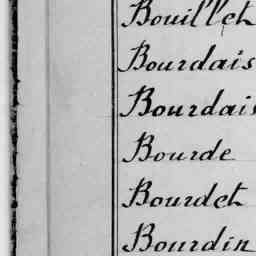 Bouillet
Bourdais
Bourdais
Bourde
Bourdet
Bourdin